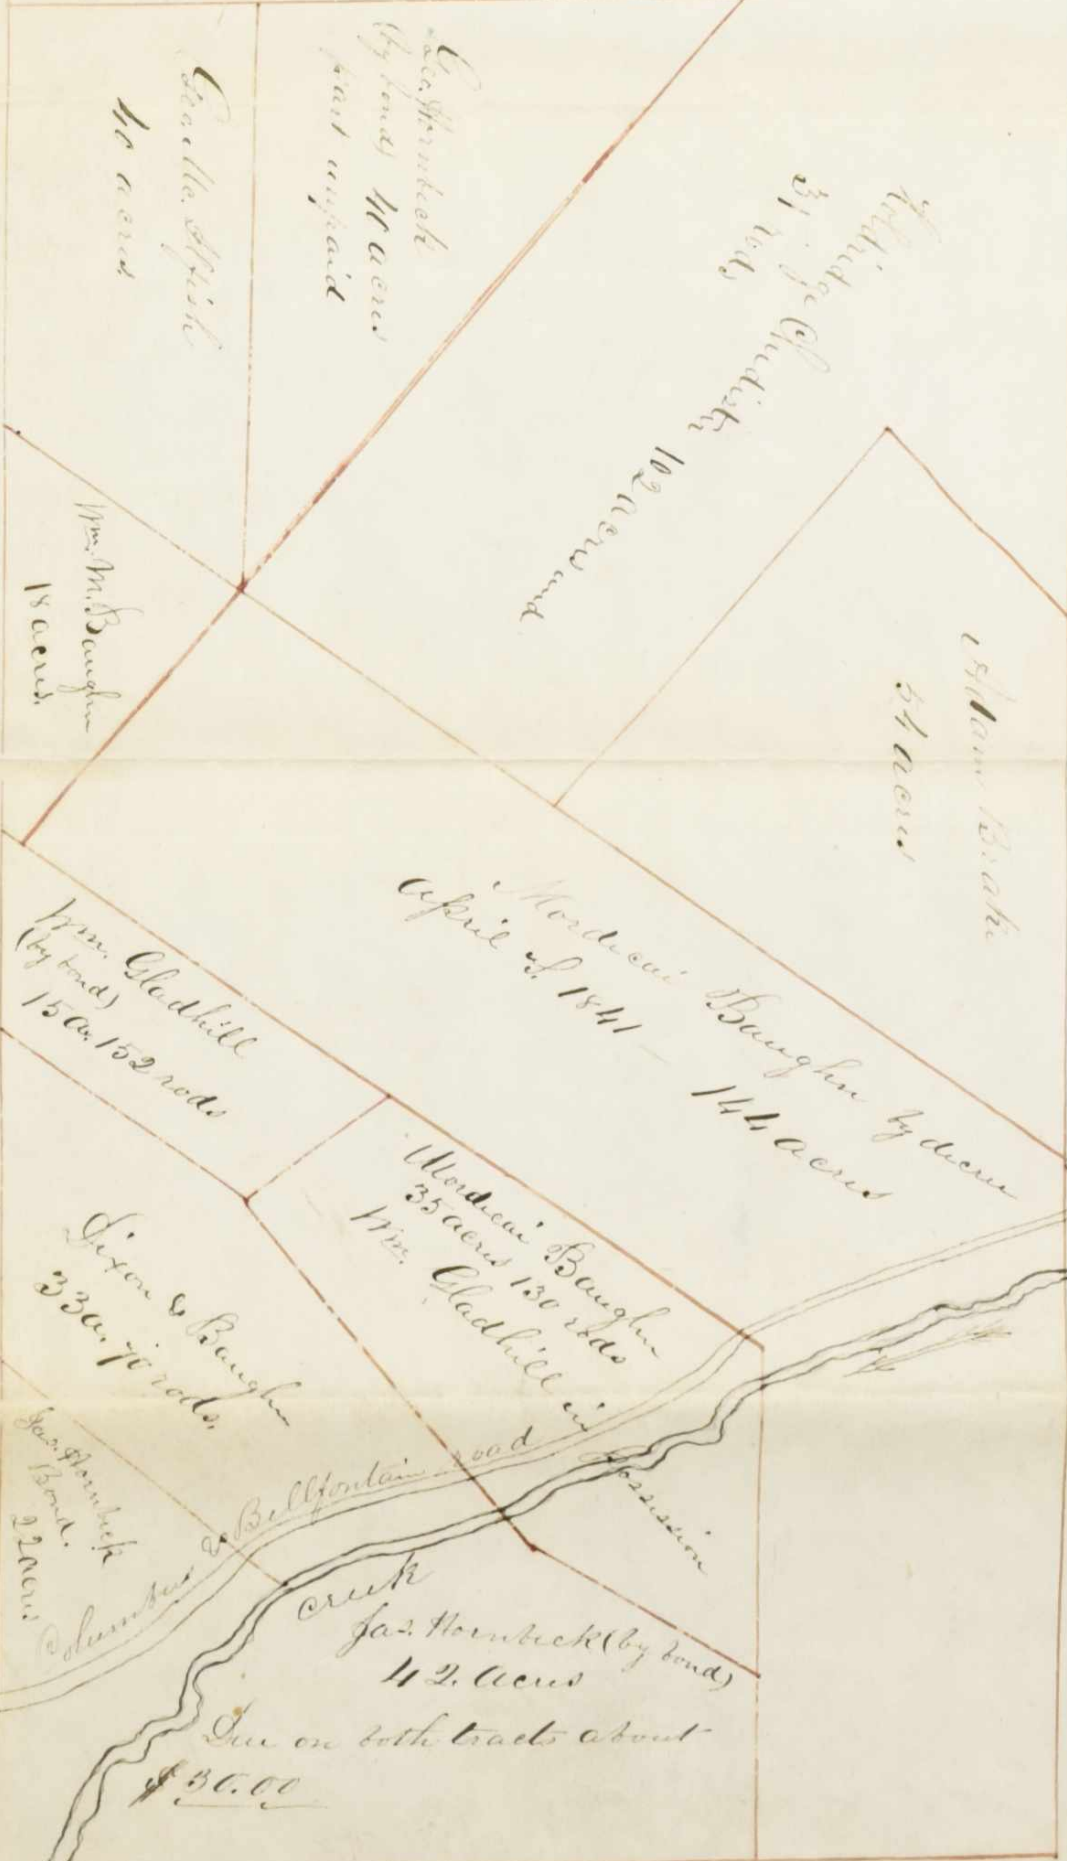 Geo. Hornbeck
(by bond) 40 acres
part unpaid
40 acres
31 rods
102 acres and
Adam
54 acres
Wm. M. Baughn
18 acres.
Mordecai Baughn by decree
April 1841 – 144 acres
Wm. Gladhill
(by bond)
15 a. 152 rods
Mordecai Baughn
35 acres 130 rods
Wm. Gladhill in possession
Dixon & Baughn
33 a. rods.
Jas. Hornbeck
Bond.
22 acres
Columbus & Bellfontain road
creek
Jas. Hornbeck (by bond)
42. acres
Due on both tracts about
$30.00